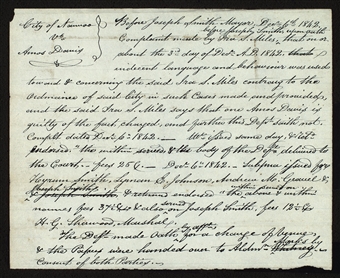 City of Nauvoo
vs
Amos Davis
Before Joseph Smith Mayor, Decr. 6th. 1842.
before Joseph Smith upon oath
Complaint made by Ira S. Miles, that on or
about the 3d. day of Decr. A.D. 1842.
indecent language and behaviour was used
toward & concerning the said Ira S. Miles contrary to the
Ordinance of said City in such Case made and provided,
and the said Ira S Miles says that one Amos Davis is
guilty of the fact charged, and further this Depnt. saith not.
Complt dates Decr. 6th 1842.— Wt. issd same day, & retd.
endorsed "the within served & the body of the Deft. delivered to
the Court.— fees 25 C.— Decr. 6th 1842. Subpna issued for
Hyrum Smith, Lyman E. Johnson, Andrew M.
Joseph Smith
& returned endorsed "the above & within
named, fees 37½ C. & also served on Joseph Smith. fees 12½ C
H. G. Sherwood, Marshal.
The Deft. made Oath by affd. for a change of Venue,
& the Papers were handed over to Alderm. by
Consent of both Parties.